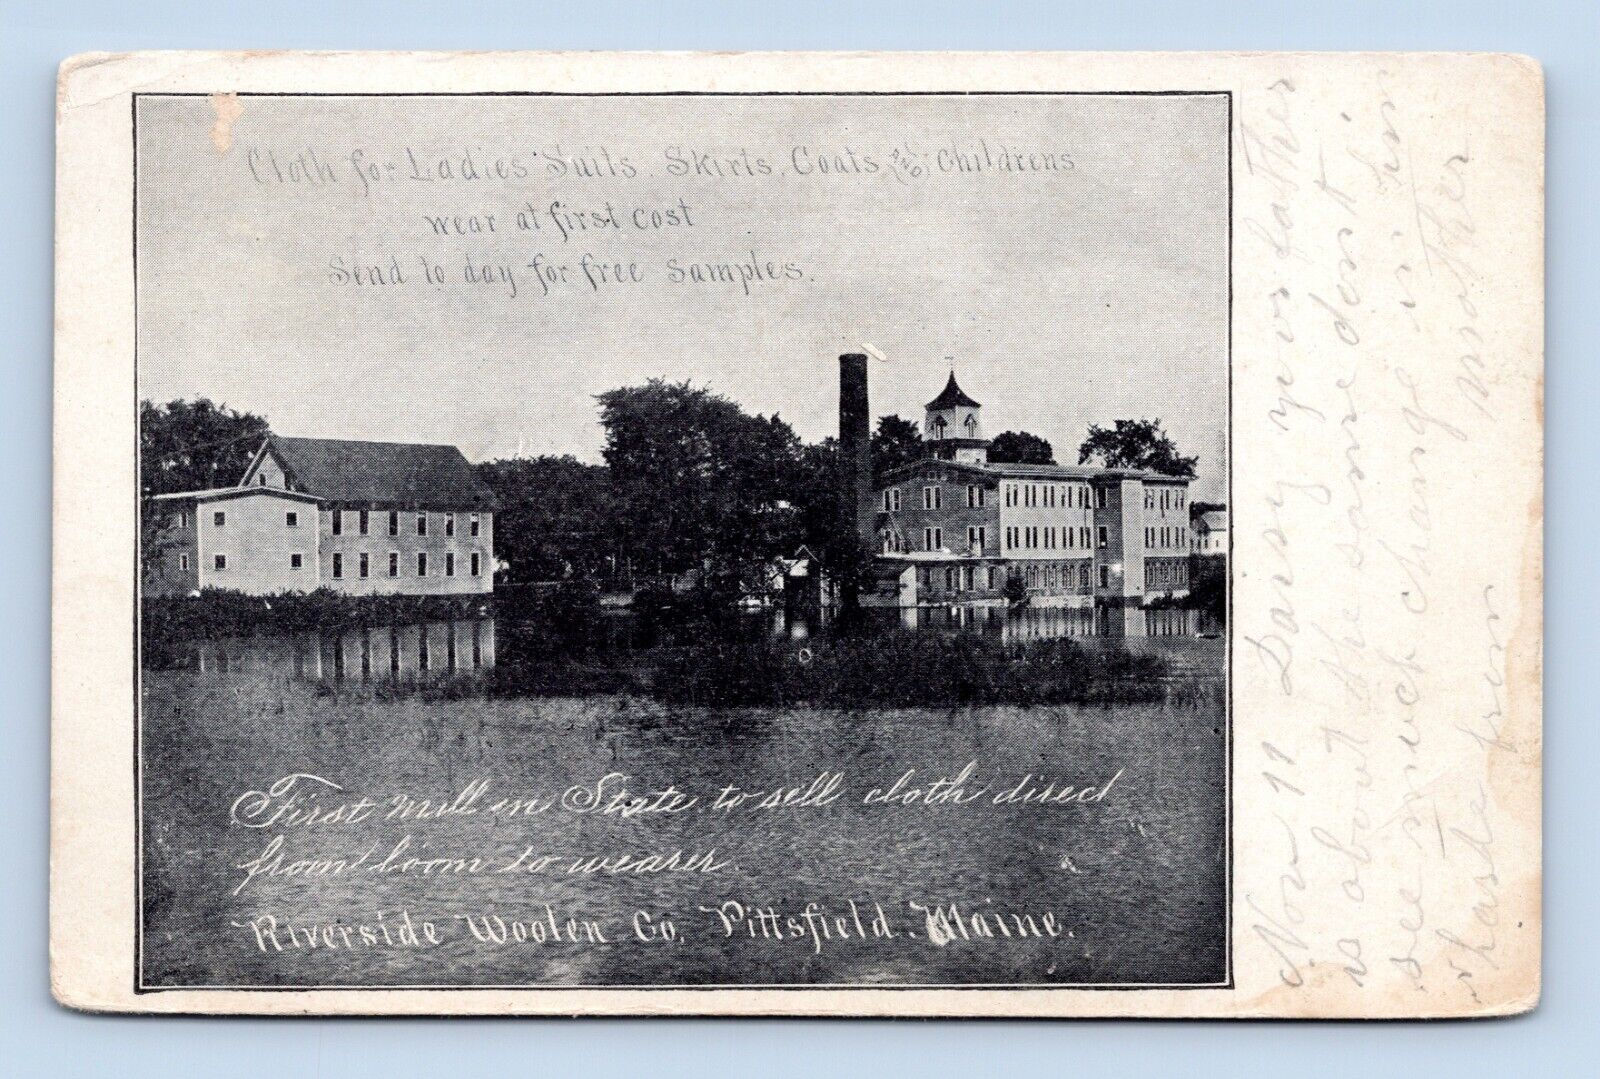 Cloth for Ladies' Suits, Skirts, Coats and Childrens
wear at first cost
Send to day for free samples.
First mill in State to sell cloth direct
from loom to wearer.
Riverside Woolen Co. Pittsfield. Maine.
Nov 11 Daisy your father
is about the same dont
see much change in him
haste from mother